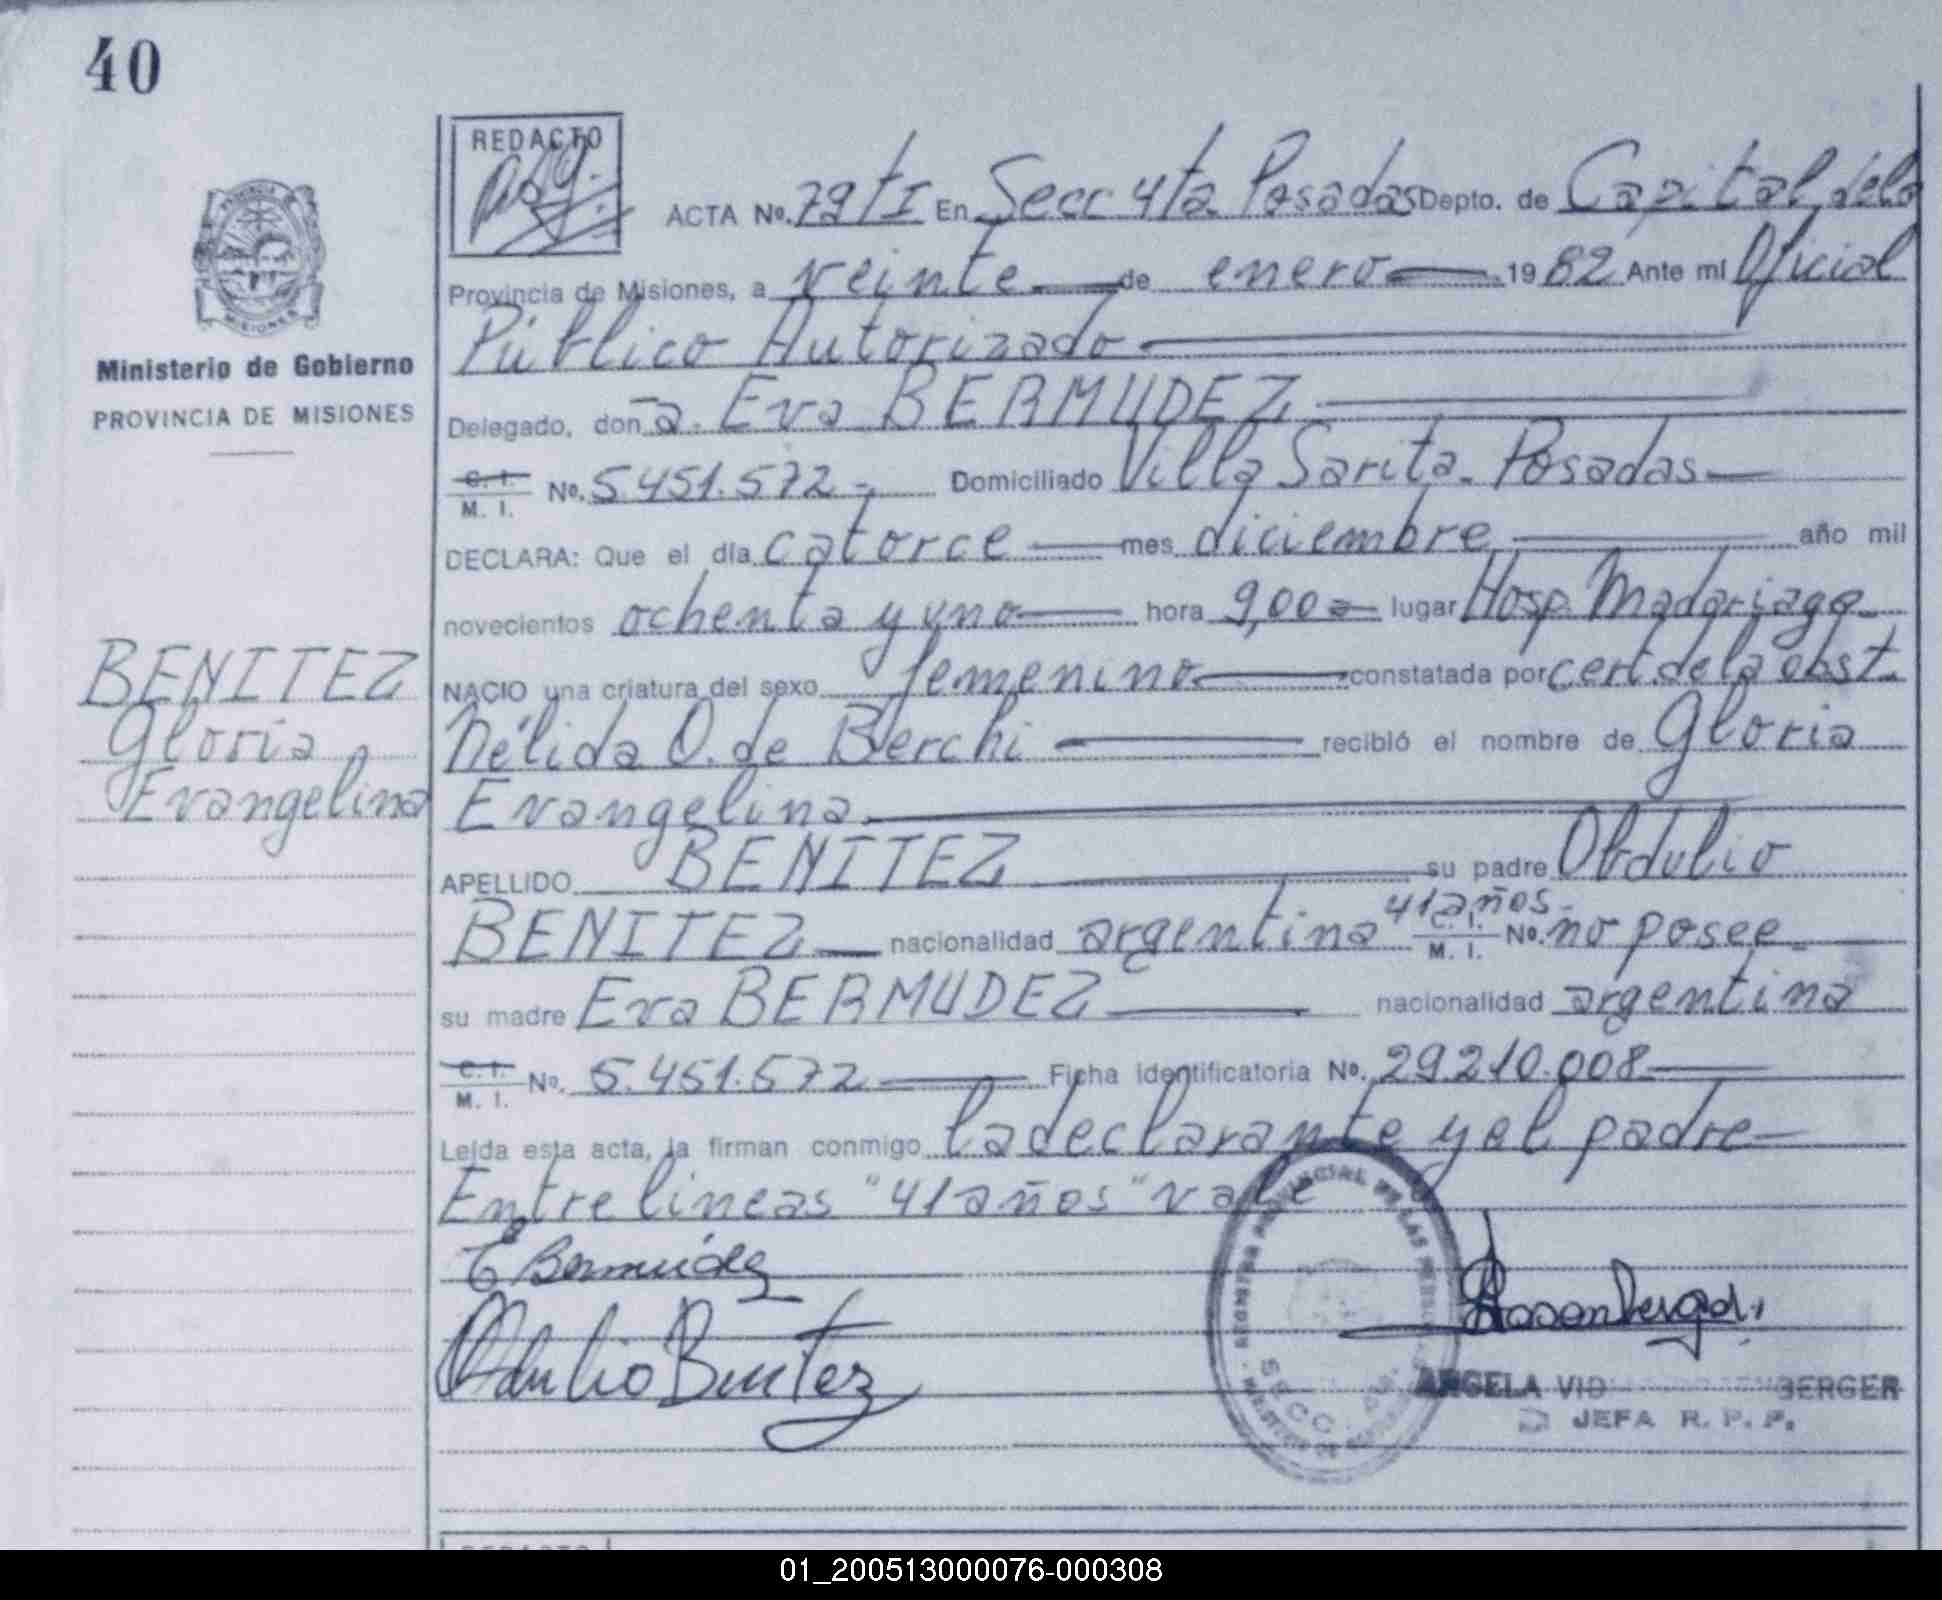 40
REDACTO
ACTA No. 79 tI En Secc 4ta Posadas Depto. de Capital, de la
Provincia de Misiones, a veinte de enero 1982 Ante mi Oficial
Público Autorizado
Ministerio de Gobierno
PROVINCIA DE MISIONES
Delegado, don a. Eva BERMUDEZ
C. I. M. I. No. 5.451.572 Domiciliado Villa Sarita - Posadas
DECLARA: Que el día catorce mes diciembre año mil
novecientos ochenta y uno hora 9,00 lugar Hosp. Madariaga
NACIO una criatura del sexo femenino constatada por cert. de la obst.
Nélida O. de Berchi recibió el nombre de Gloria
Evangelina
BENITEZ
Gloria
Evangelina
APELLIDO BENITEZ su padre Obdulio
41 años
BENITEZ nacionalidad argentina C. I. M. I. No. no posee
su madre Eva BERMUDEZ nacionalidad argentina
C. I. M. I. No. 5.451.572 Ficha identificatoria No. 29.210.008
Leída esta acta, la firman conmigo la declarante y el padre
Entre lineas "41 años" vale
E Bermúdez
Obdulio Benitez
SECC. 4ta.
ANGELA VID BERGER
JEFA R. P. P.
01_200513000076-000308